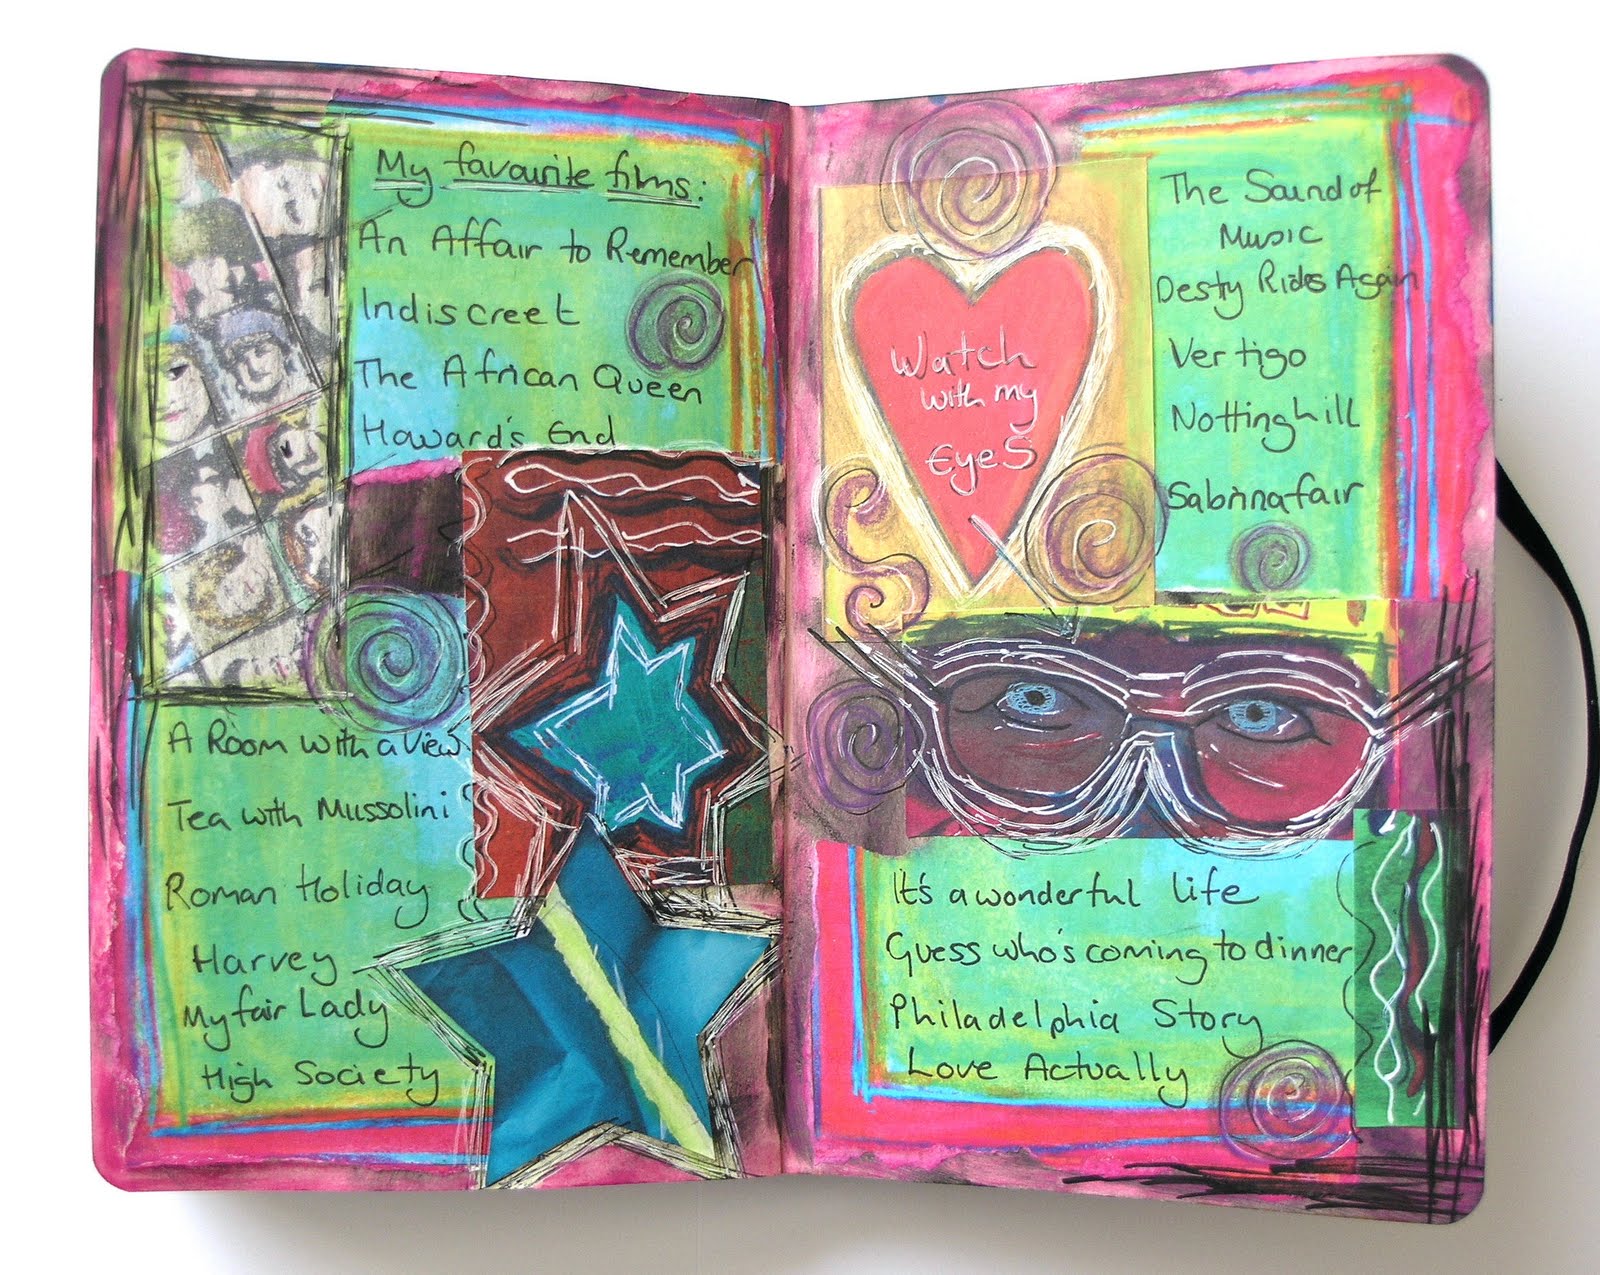 My favourite films:
An Affair to Remember
Indiscreet
The African Queen
Howard's End
A Room with a View
Tea with Mussolini
Roman Holiday
Harvey
My fair Lady
High Society
Watch
with my
EyeS
The Sound of
Music
Desty Rides Again
Vertigo
Nottinghill
Sabrinafair
It's a wonderful life
Guess who's coming to dinner
Philadelphia Story
Love Actually